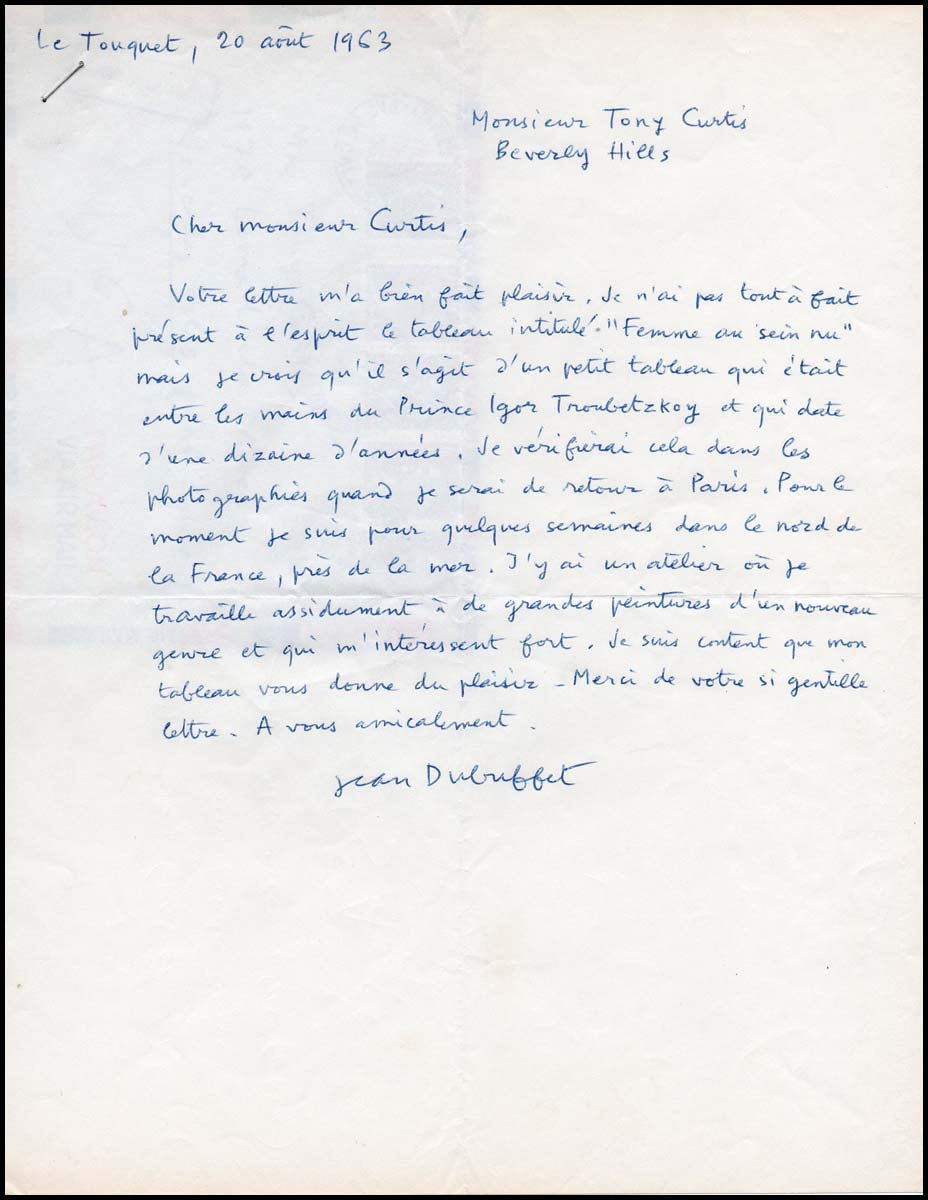 Le Touquet, 20 août 1963
Monsieur Tony Curtis
Beverly Hills
Cher monsieur Curtis,
Votre lettre m'a bien fait plaisir. Je n'ai pas tout à fait
présent à l'esprit le tableau intitulé "Femme au sein nu"
mais je crois qu'il s'agit d'un petit tableau qui était
entre les mains du Prince Igor Troubetzkoy et qui date
d'une dizaine d'années. Je vérifierai cela dans les
photographies quand je serai de retour à Paris. Pour le
moment je suis pour quelques semaines dans le nord de
la France, près de la mer. J'y ai un atelier où je
travaille assidument à de grandes peintures d'un nouveau
genre et qui m'intéressent fort. Je suis content que mon
tableau vous donne du plaisir - Merci de votre si gentille
lettre. A vous amicalement.
Jean Dubuffet